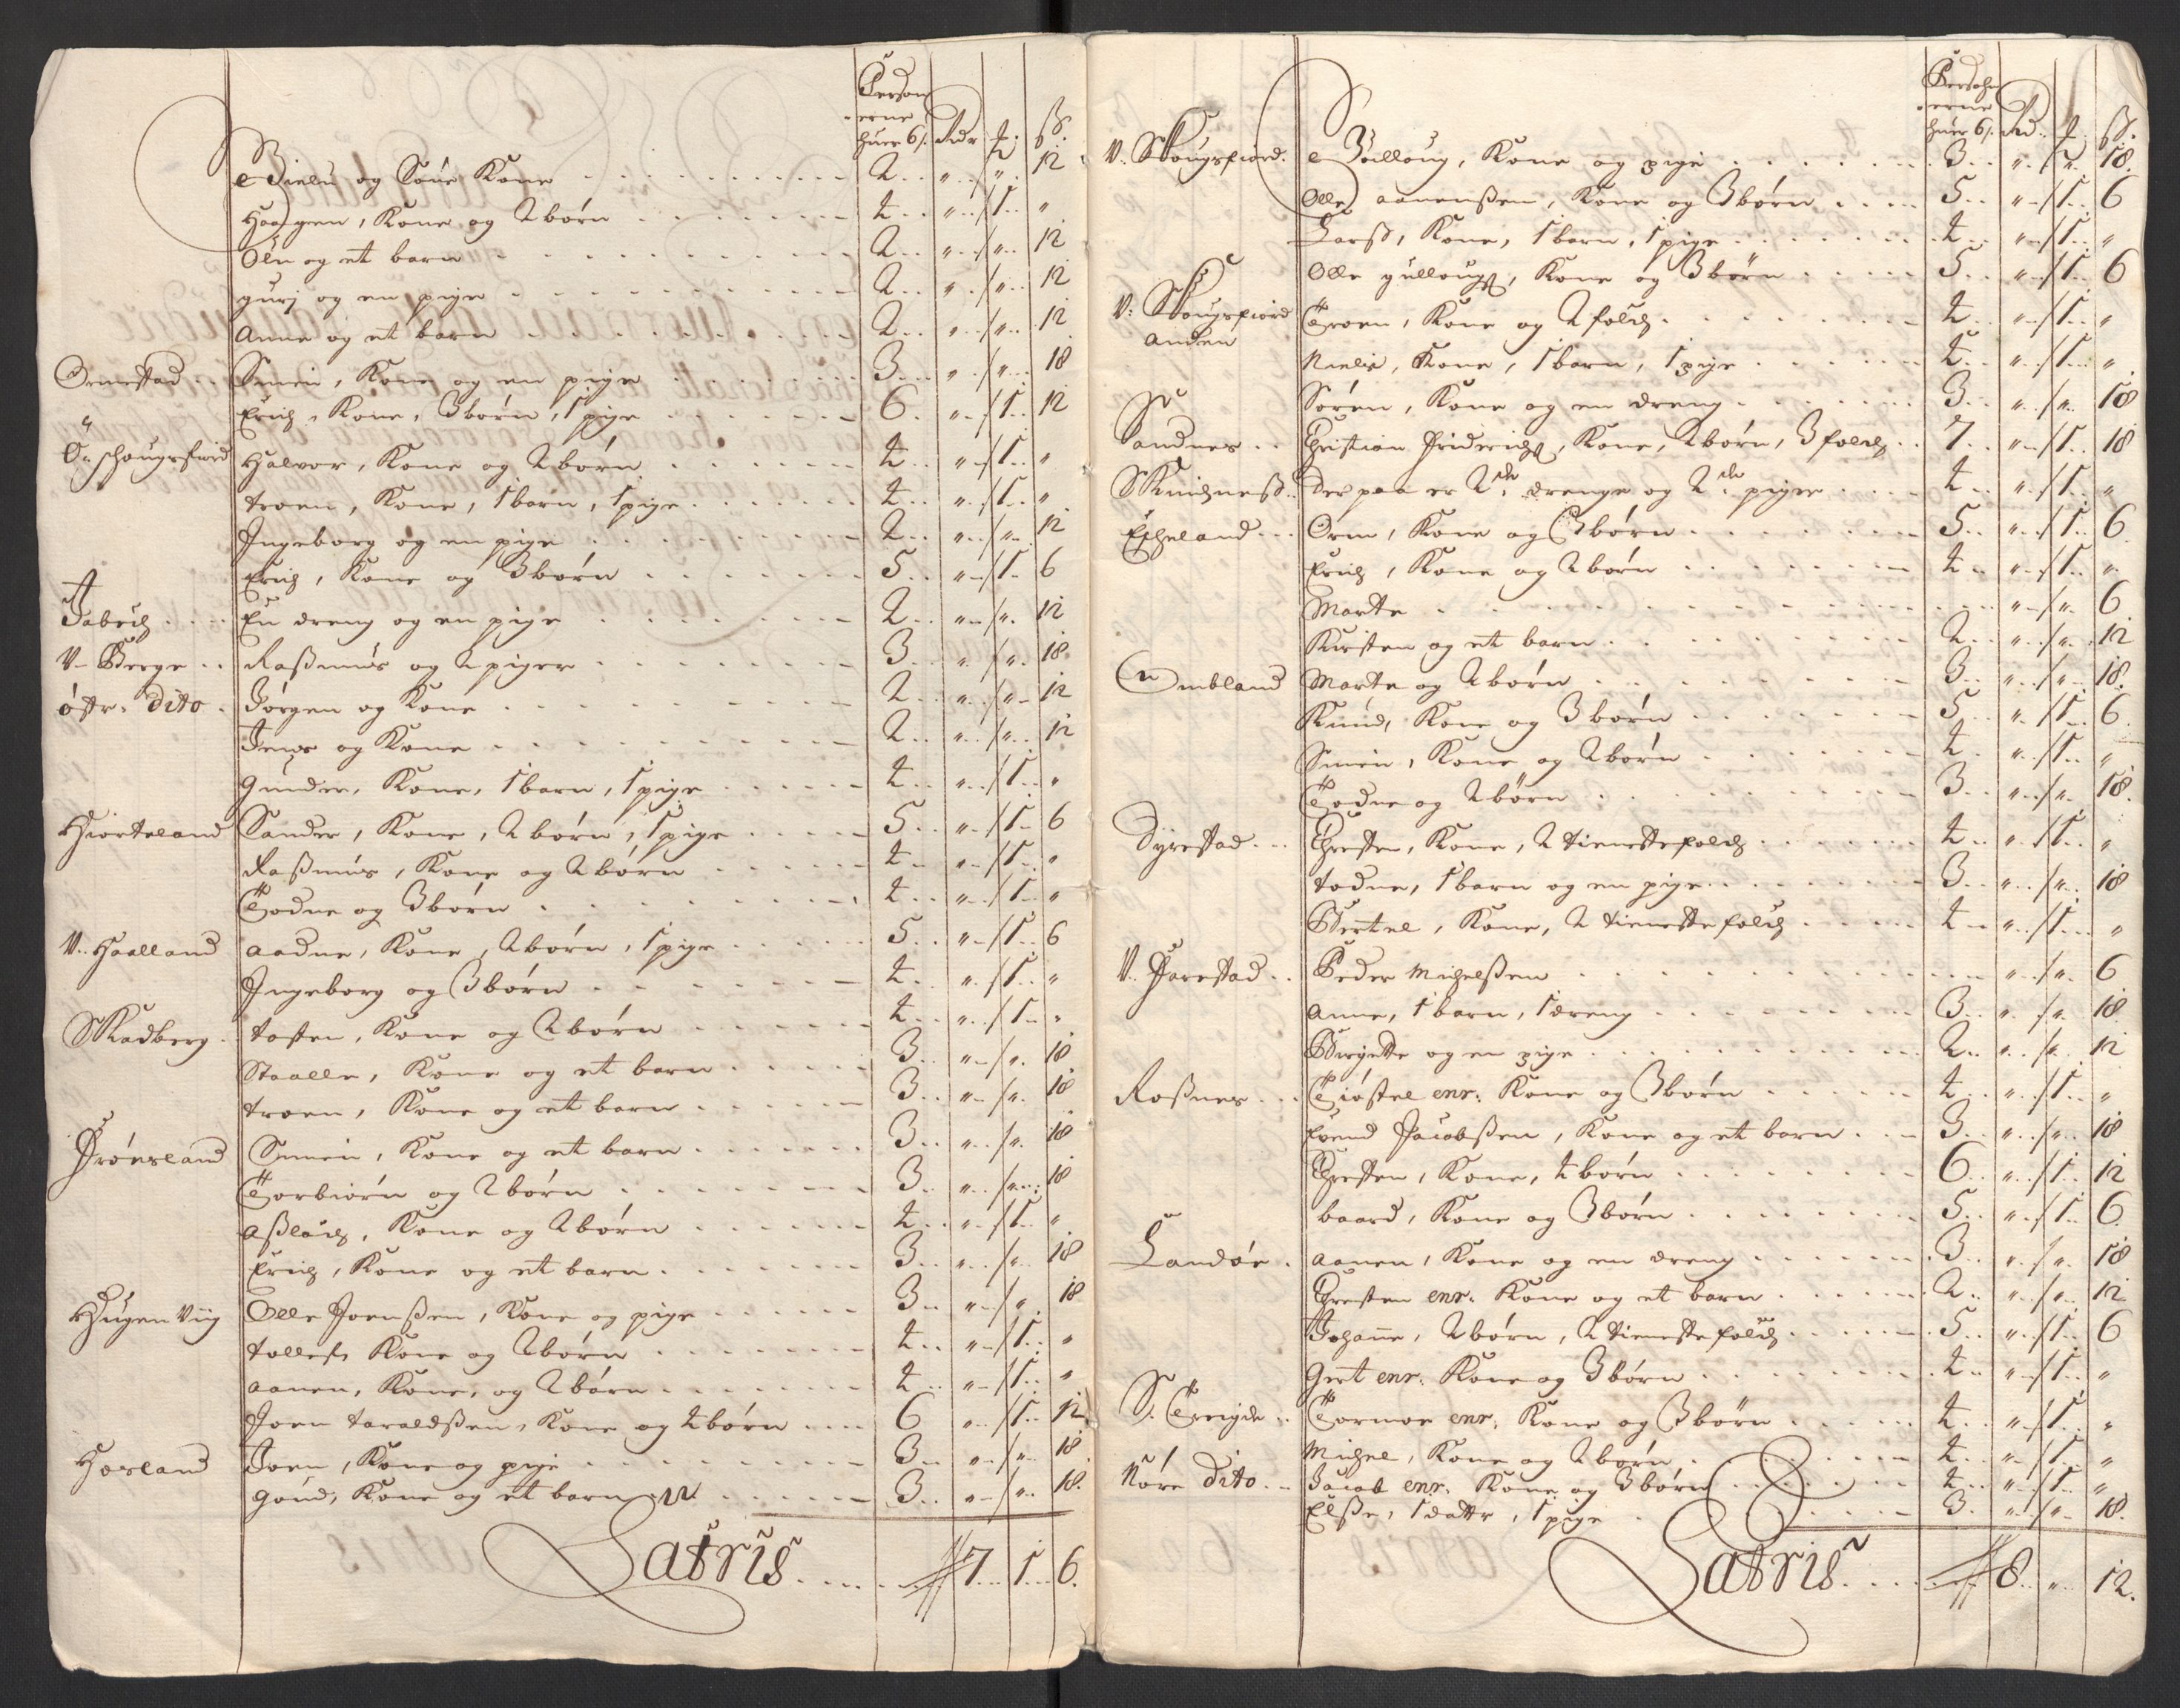 Person
erne
huer 6/. Rdr ʒ. ss.
Sielu og Søns Kone 2 „ „ 12
Haagen, Kone og 2 børn 4 „ 1 „
Oln og et barn 2 „ „ 12
gurj og en pige 2 „ „ 12
Anne og et barn 2 „ „ 12
Ormestad Simen, Kone og en pige 3 „ „ 18
Erich, Kone, 3 børn, 1 pige 6 „ 1 12
Ø: schougsfiord Halvor, Kone og 2 børn 4 „ 1 „
troen, Kone, 1 barn, 1 pige 4 „ 1 „
Ingeborg og en pige 2 „ „ 12
Erich, Kone og 3 børn 5 „ 1 6
En dreng og en pige 2 „ „ 12
V. Berge Rasmus og 2 piger 3 „ „ 18
østr. Dito Jørgen og Kone 2 „ „ 12
Jens og Kone 2 „ „ 12
Gunder, Kone, 1 barn, 1 pige 4 „ 1 „
Hiorteland Sander, Kone, 2 børn, 1 pige 5 „ 1 6
Rasmus, Kone og 2 børn 4 „ 1 „
Todne og 3 børn 4 „ 1 „
V. Haalland Aadne, Kone, 2 børn, 1 pige 5 „ 1 6
Ingeborg og 3 børn 4 „ 1 „
Skadberg tosten, Kone og 2 børn 4 „ 1 „
Staalle, Kone og et barn 3 „ „ 18
troen, Kone og et barn 3 „ „ 18
Frøusland Simen, Kone og et barn 3 „ „ 18
Torbiørn og 2 børn 3 „ „ 18
Aslach, Kone og 2 børn 4 „ 1 „
Erich, Kone og et barn 3 „ „ 18
Hugen Viig Olle Joenssen, Kone og pige 3 „ „ 18
tollef, Kone og 2 børn 4 „ 1 „
aanen, Kone, og 2 børn 4 „ 1 „
Joen taraldssen, Kone og 4 børn 6 „ 1 12
Horland Joen, Kone og pige 3 „ „ 18
Goud, Kone og et barn 3 „ „ 18.
Latris 7 1 6.
Persohn
erne
huer 6/. Rd. ʒ. ss.
V. Skougsfiord. Gulloug, Kone og pige 3 „ „ 18.
Olle aanenssen, Kone og 3 børn 5 „ 1 6
Larss, Kone, 1 barn, 1 pige 4 „ 1 „
Olle gullougs, Kone og 3 børn 5 „ 1 6
V: Skougsfiord Troen, Kone og 2 folch 4 „ 1 „
anden
Nielss, Kone, 1 barn, 1 pige 4 „ 1 „
Søren, Kone og en dreng 3 „ „ 18
Sandnes Christian Friderichs, Kone, 2 børn, 3 folch 7 „ 1 18
Der paa er 2de drenge og 2de piger 4 „ 1 „
Egeland Orm, Kone og 3 børn 5 „ 1 6
Erich, Kone og 2 børn 4 „ 1 „
Marte „ „ 6
Kirsten og et barn 2 „ „ 12
Ombland Marte og 2 børn 3 „ „ 18.
Knud, Kone og 3 børn 5 „ 1 6
Simen, Kone og 2 børn 4 „ 1 „
Todne og 2 børn 3 „ „ 18.
Dyrestad Chresten, Kone, 2 tienestefolch 4 „ 1 „
todne, 1 barn og en pige 3 „ „ 18
Bertel, Kone, 2 tienestefolch 4 „ 1 „
V. Jarestad Peder Michelssen „ „ 6
Anne, 1 barn, 1 dreng 3 „ „ 18
Birgette og en pige 2 „ „ 12
Rossnes Tiøstel enr. Kone og 3 børn 4 „ 1 „
Svend Jacobssen, Kone og et barn 3 „ „ 18
Chresten, Kone, 4 børn 6 „ 1 12
baard, Kone og 3 børn 5 „ 1 6
Landøe aanen, Kone og en dreng 3 „ „ 18
Chresten enr. Kone og et barn 2 „ „ 12
Johanne, 2 børn, 2 tienestefolch 5 „ 1 6
Gert enr. Kone og 3 børn 4 „ 1 „
S. Tregde Tormoe enr. Kone og 3 børn 4 „ 1 „
Michel, Kone og 2 børn 4 „ 1 „
Nøre Dito Jacob enr. Kone og 3 børn 4 „ 1 „
Elsse, 1 datter, 1 pige 3 „ „ 18.
Latris 8 „ 12.